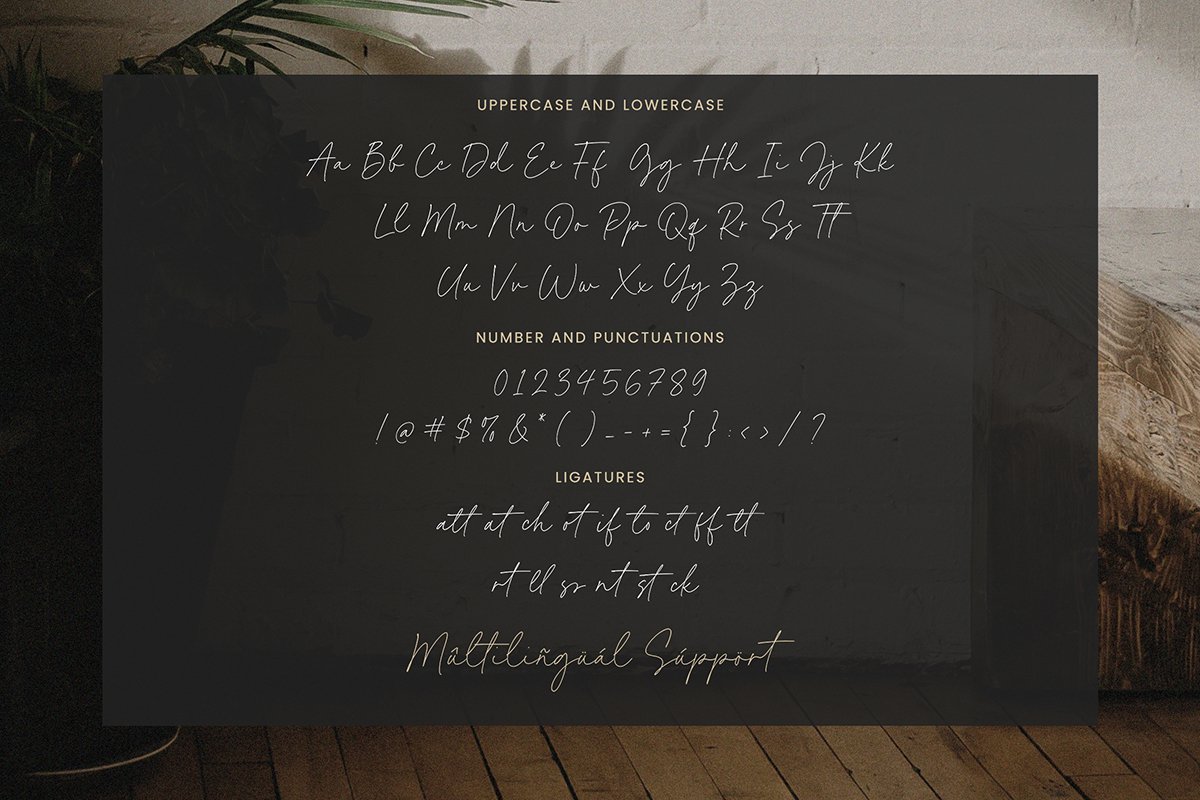 UPPERCASE AND LOWERCASE
Aa Bb Cc Dd Ee Ff Gg Hh Ii Jj Kk
Ll Mm Nn Oo Pp Qq Rr Ss Tt
Uu Vv Ww Xx Yy Zz
NUMBER AND PUNCTUATIONS
0123456789
! @ # $ % & * ( ) _ - + = { } : < > / ?
LIGATURES
att at ch ot if to ct ff tt
rt ll ss nt st ck
Mûltilingüál Súppört